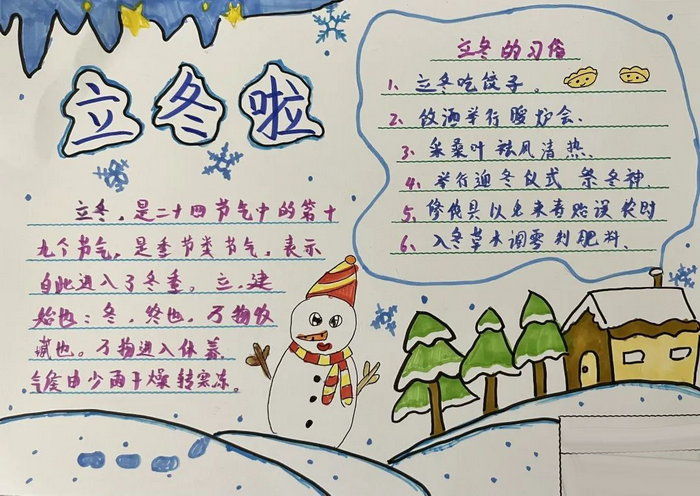 立冬啦
立冬，是二十四节气中的第十
九个节气，是季节类节气，表示
自此进入了冬季。立，建
始也；冬，终也，万物收
藏也。万物进入休养
气候由少雨干燥转寒冻。
立冬的习俗
1、立冬吃饺子。
2、饮酒举行暖炉会.
3、采桑叶祛风清热.
4、举行迎冬仪式 祭冬神.
5、修农具以免来春贻误农时
6、入冬草木调零利肥料.